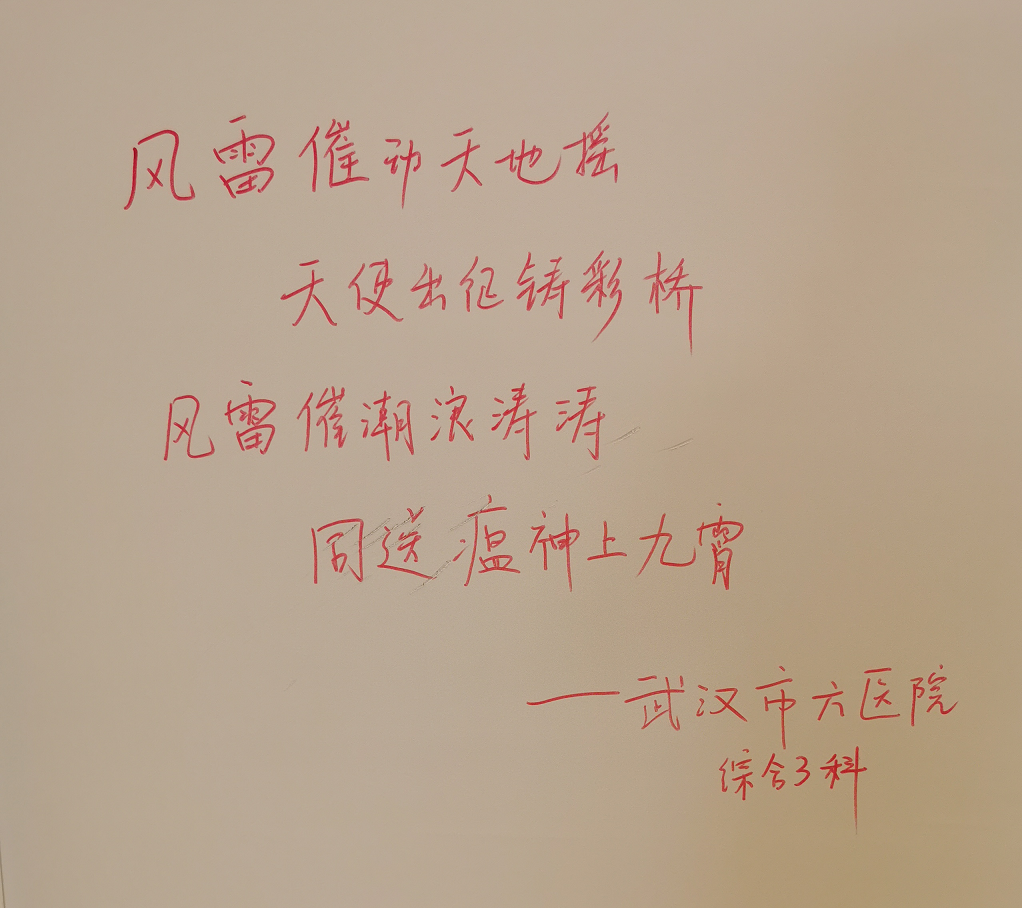 风雷催动天地摇
天使出征铸彩桥
风雷催潮浪涛涛
同送瘟神上九霄
——武汉市六医院
综合3科